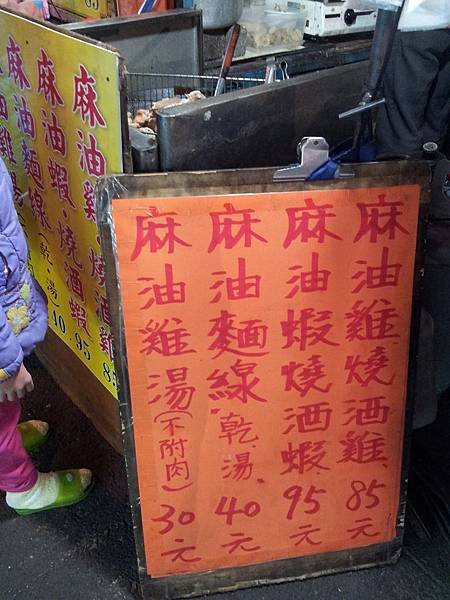 麻油雞燒酒雞85元
麻油蝦燒酒蝦95元
麻油麵線.乾.湯.40元
麻油雞湯(不附肉)30元
麻油雞.燒酒雞85
麻油蝦.燒酒蝦95
麻油麵線乾.湯40
85